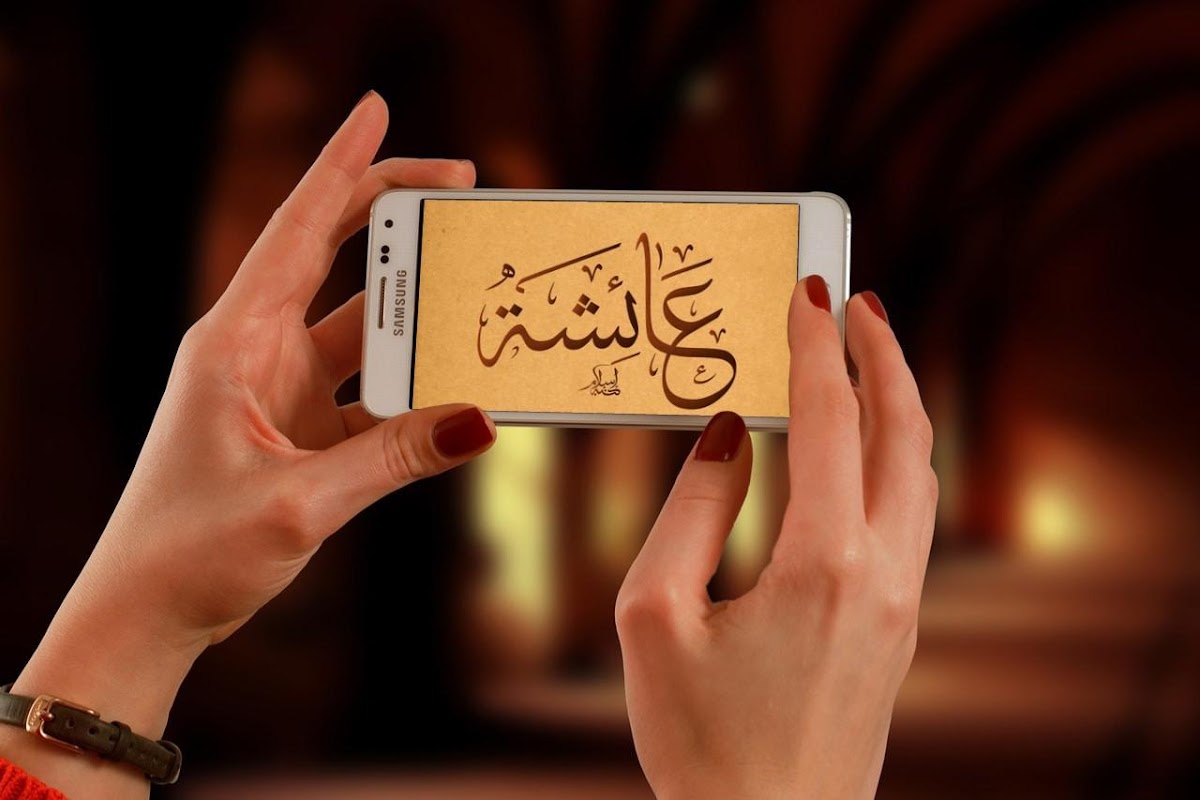 SAMSUNG
عَائِشَةُ